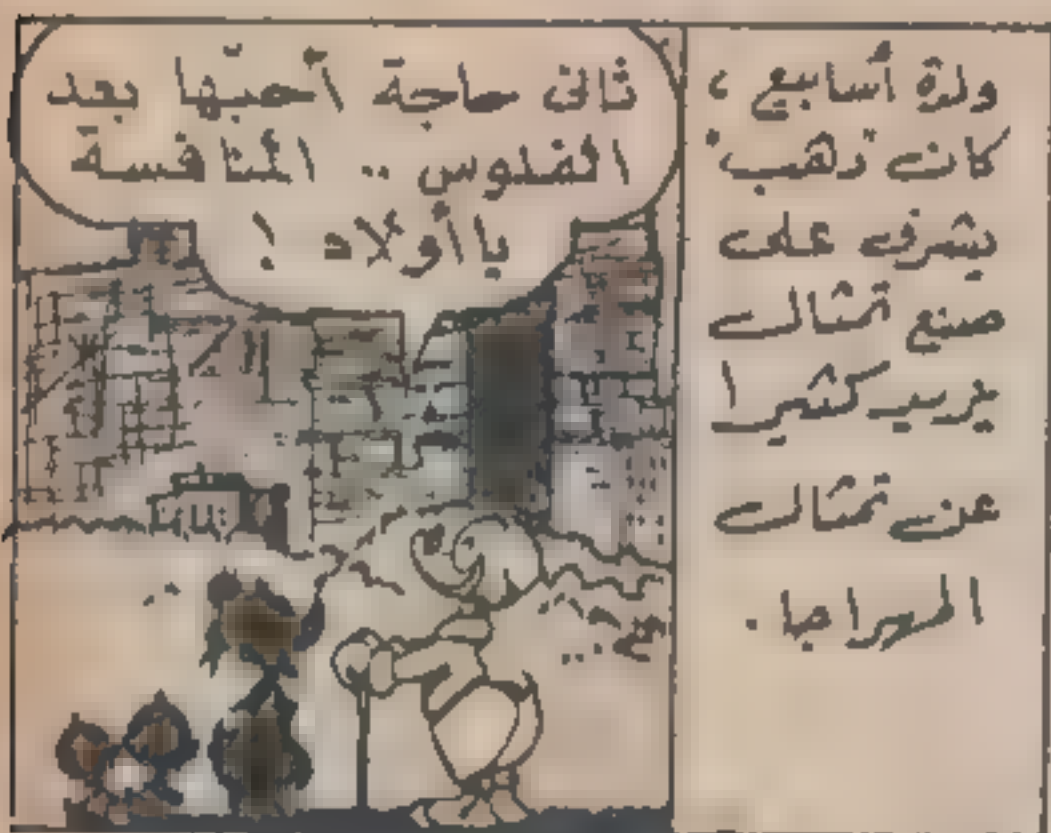 ولمدة أسابيع ،
كان "دهب"
يشرف على
صنع تمثال
يزيد كثيرا
عن تمثال
المهراجا .
ثانى حاجة أحبّها بعد
الفلوس .. المنافسة
يا أولاد !